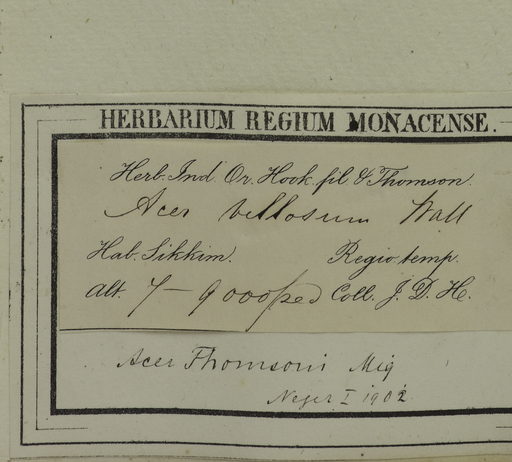 HERBARIUM REGIUM MONACENSE.
Herb. Ind. Or. Hook. fil & Thomson.
Acer villosum Wall
Hab. Sikkim. Regio temp.
Alt. 7-9000 ped Coll. J. D. H.
Acer Thomsoni Miq
I 1902